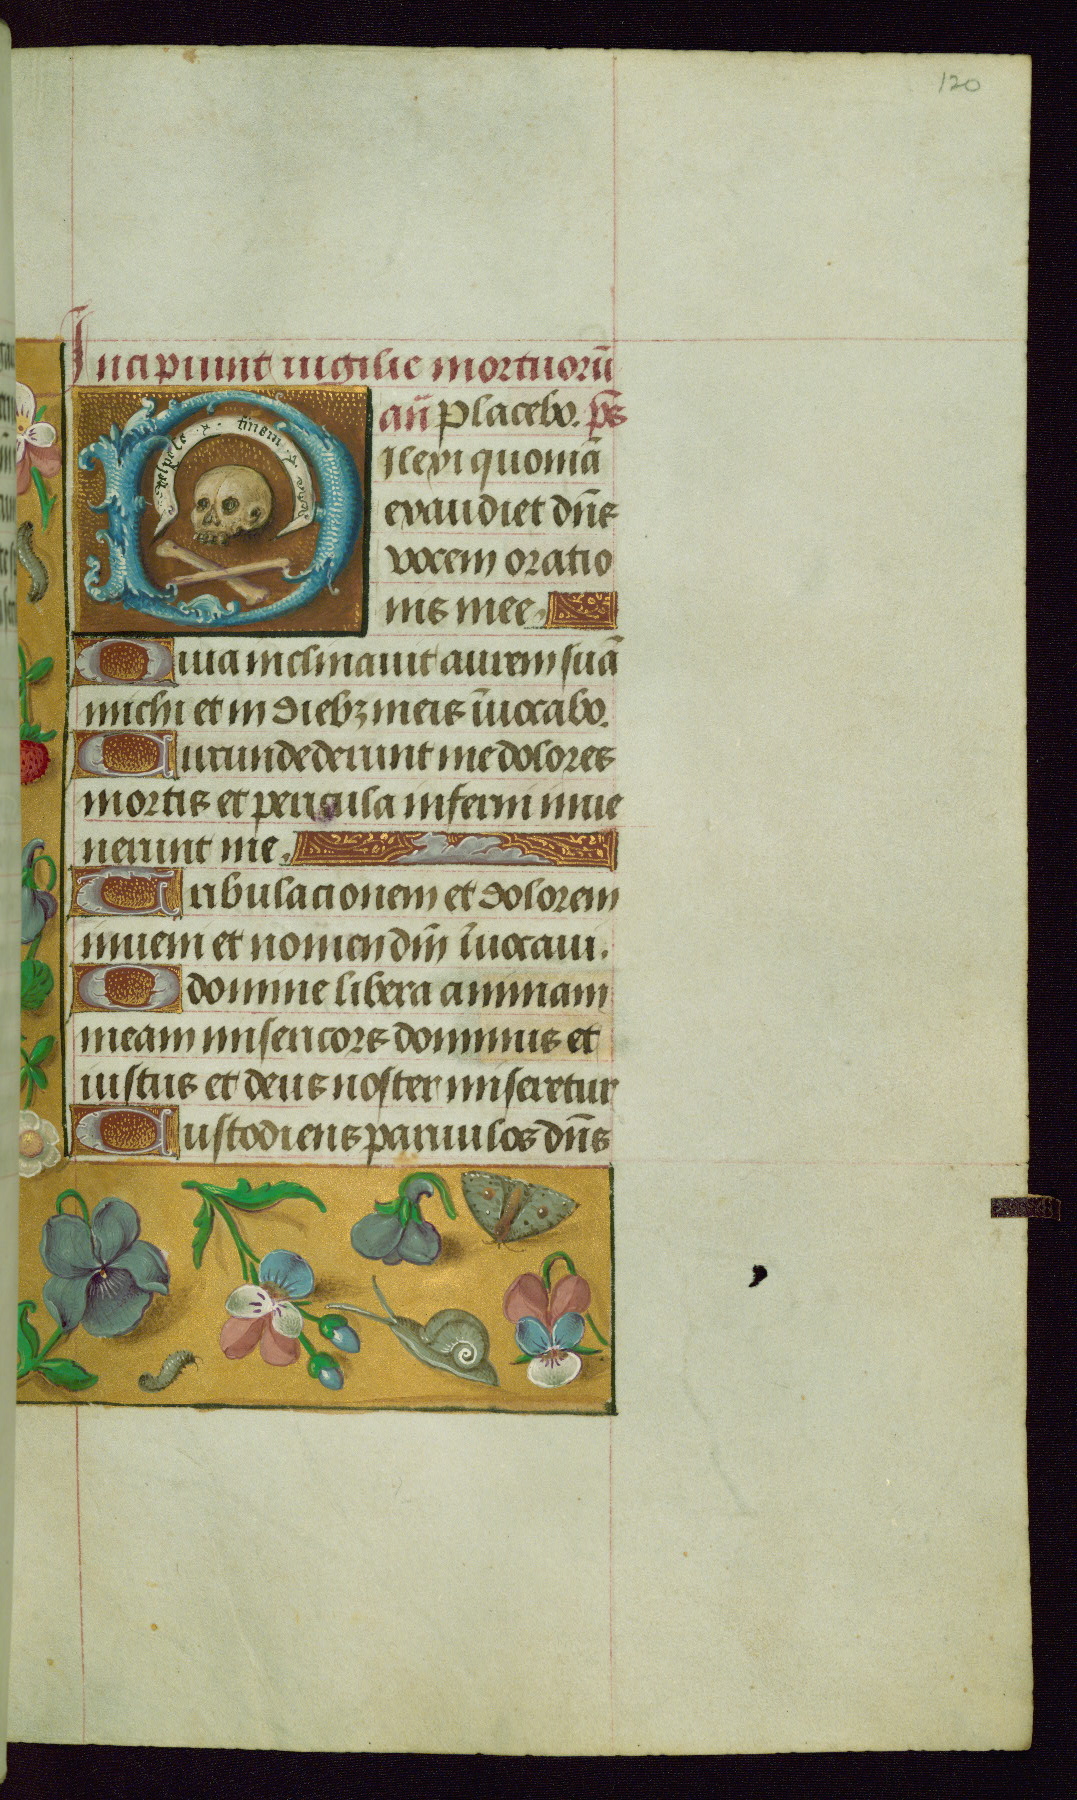 120
Incipiunt vigilie mortuorū
an̄ Placebo. ps̄
Dilexi quoniā
exaudiet dn̄s
vocem oratio
nis mee.
Quia inclinavit aurem suā
michi et in diebꝫ meis īuocabo.
Circundederunt me dolores
mortis et pericula inferni inue
nerunt me.
Tribulacionem et dolorem
inueni et nomen dn̄i īuocaui.
O domine libera animam
meam misericors dominus et
iustus et deus noster miseretur
Custodiens paruulos dn̄s